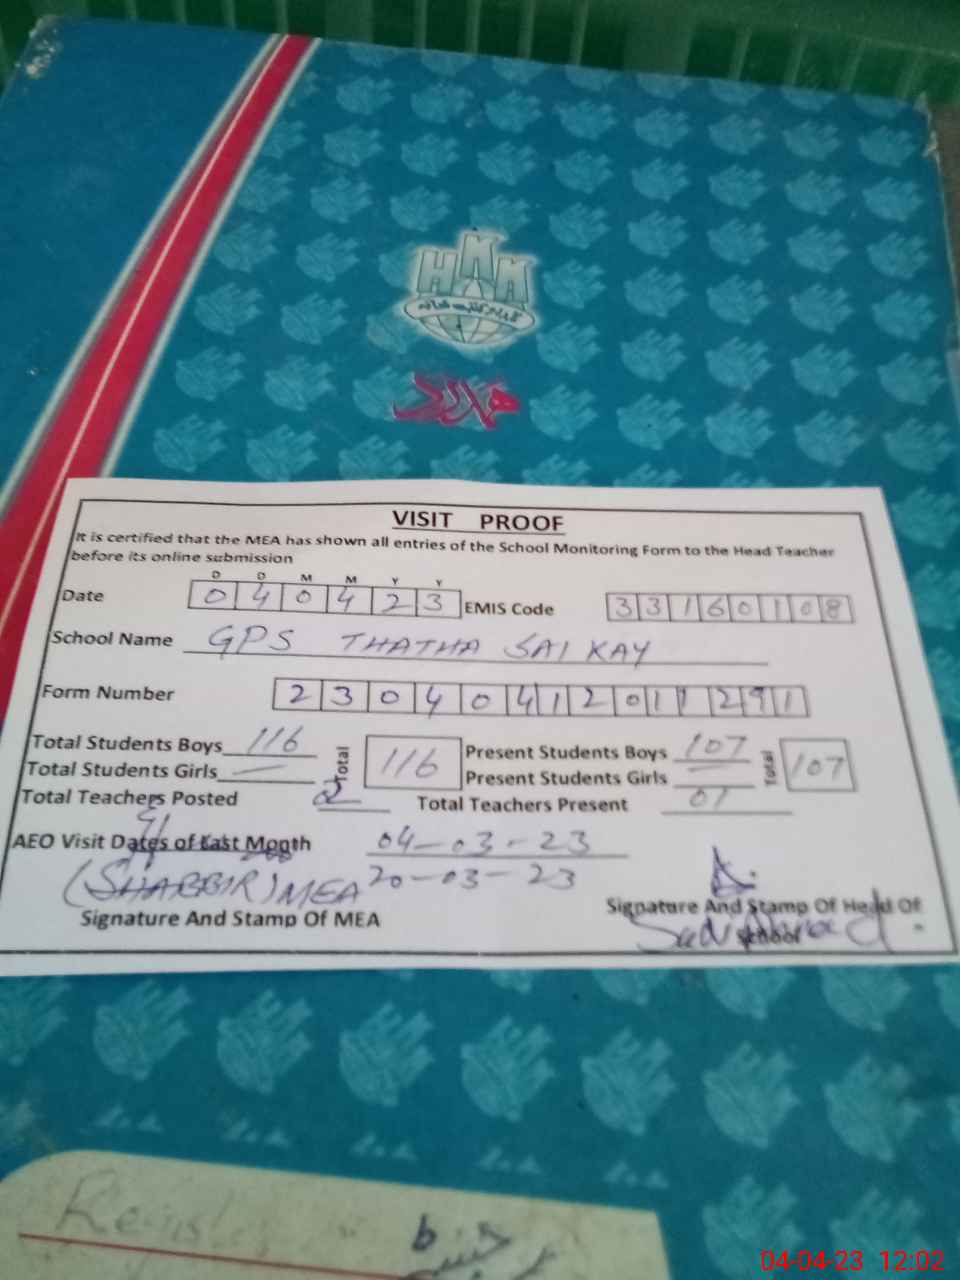 HKK
VISIT PROOF
It is certified that the MEA has shown all entries of the School Monitoring Form to the Head Teacher
before its online submission
D D M M Y Y
Date 0 4 0 4 2 3 EMIS Code 3 3 1 6 0 1 0 8
School Name GPS THATHA SAI KAY
Form Number 2 3 0 4 0 4 1 2 0 1 1 2 9 1
Total Students Boys 116 Total 116 Present Students Boys 107 Total 107
Total Students Girls — Present Students Girls —
Total Teachers Posted 2 Total Teachers Present 01
AEO Visit Dates of Last Month 04-03-23
(SHABBIR) MEA 20-03-23
Signature And Stamp Of MEA Signature And Stamp Of Head Of
School
04-04-23 12:02